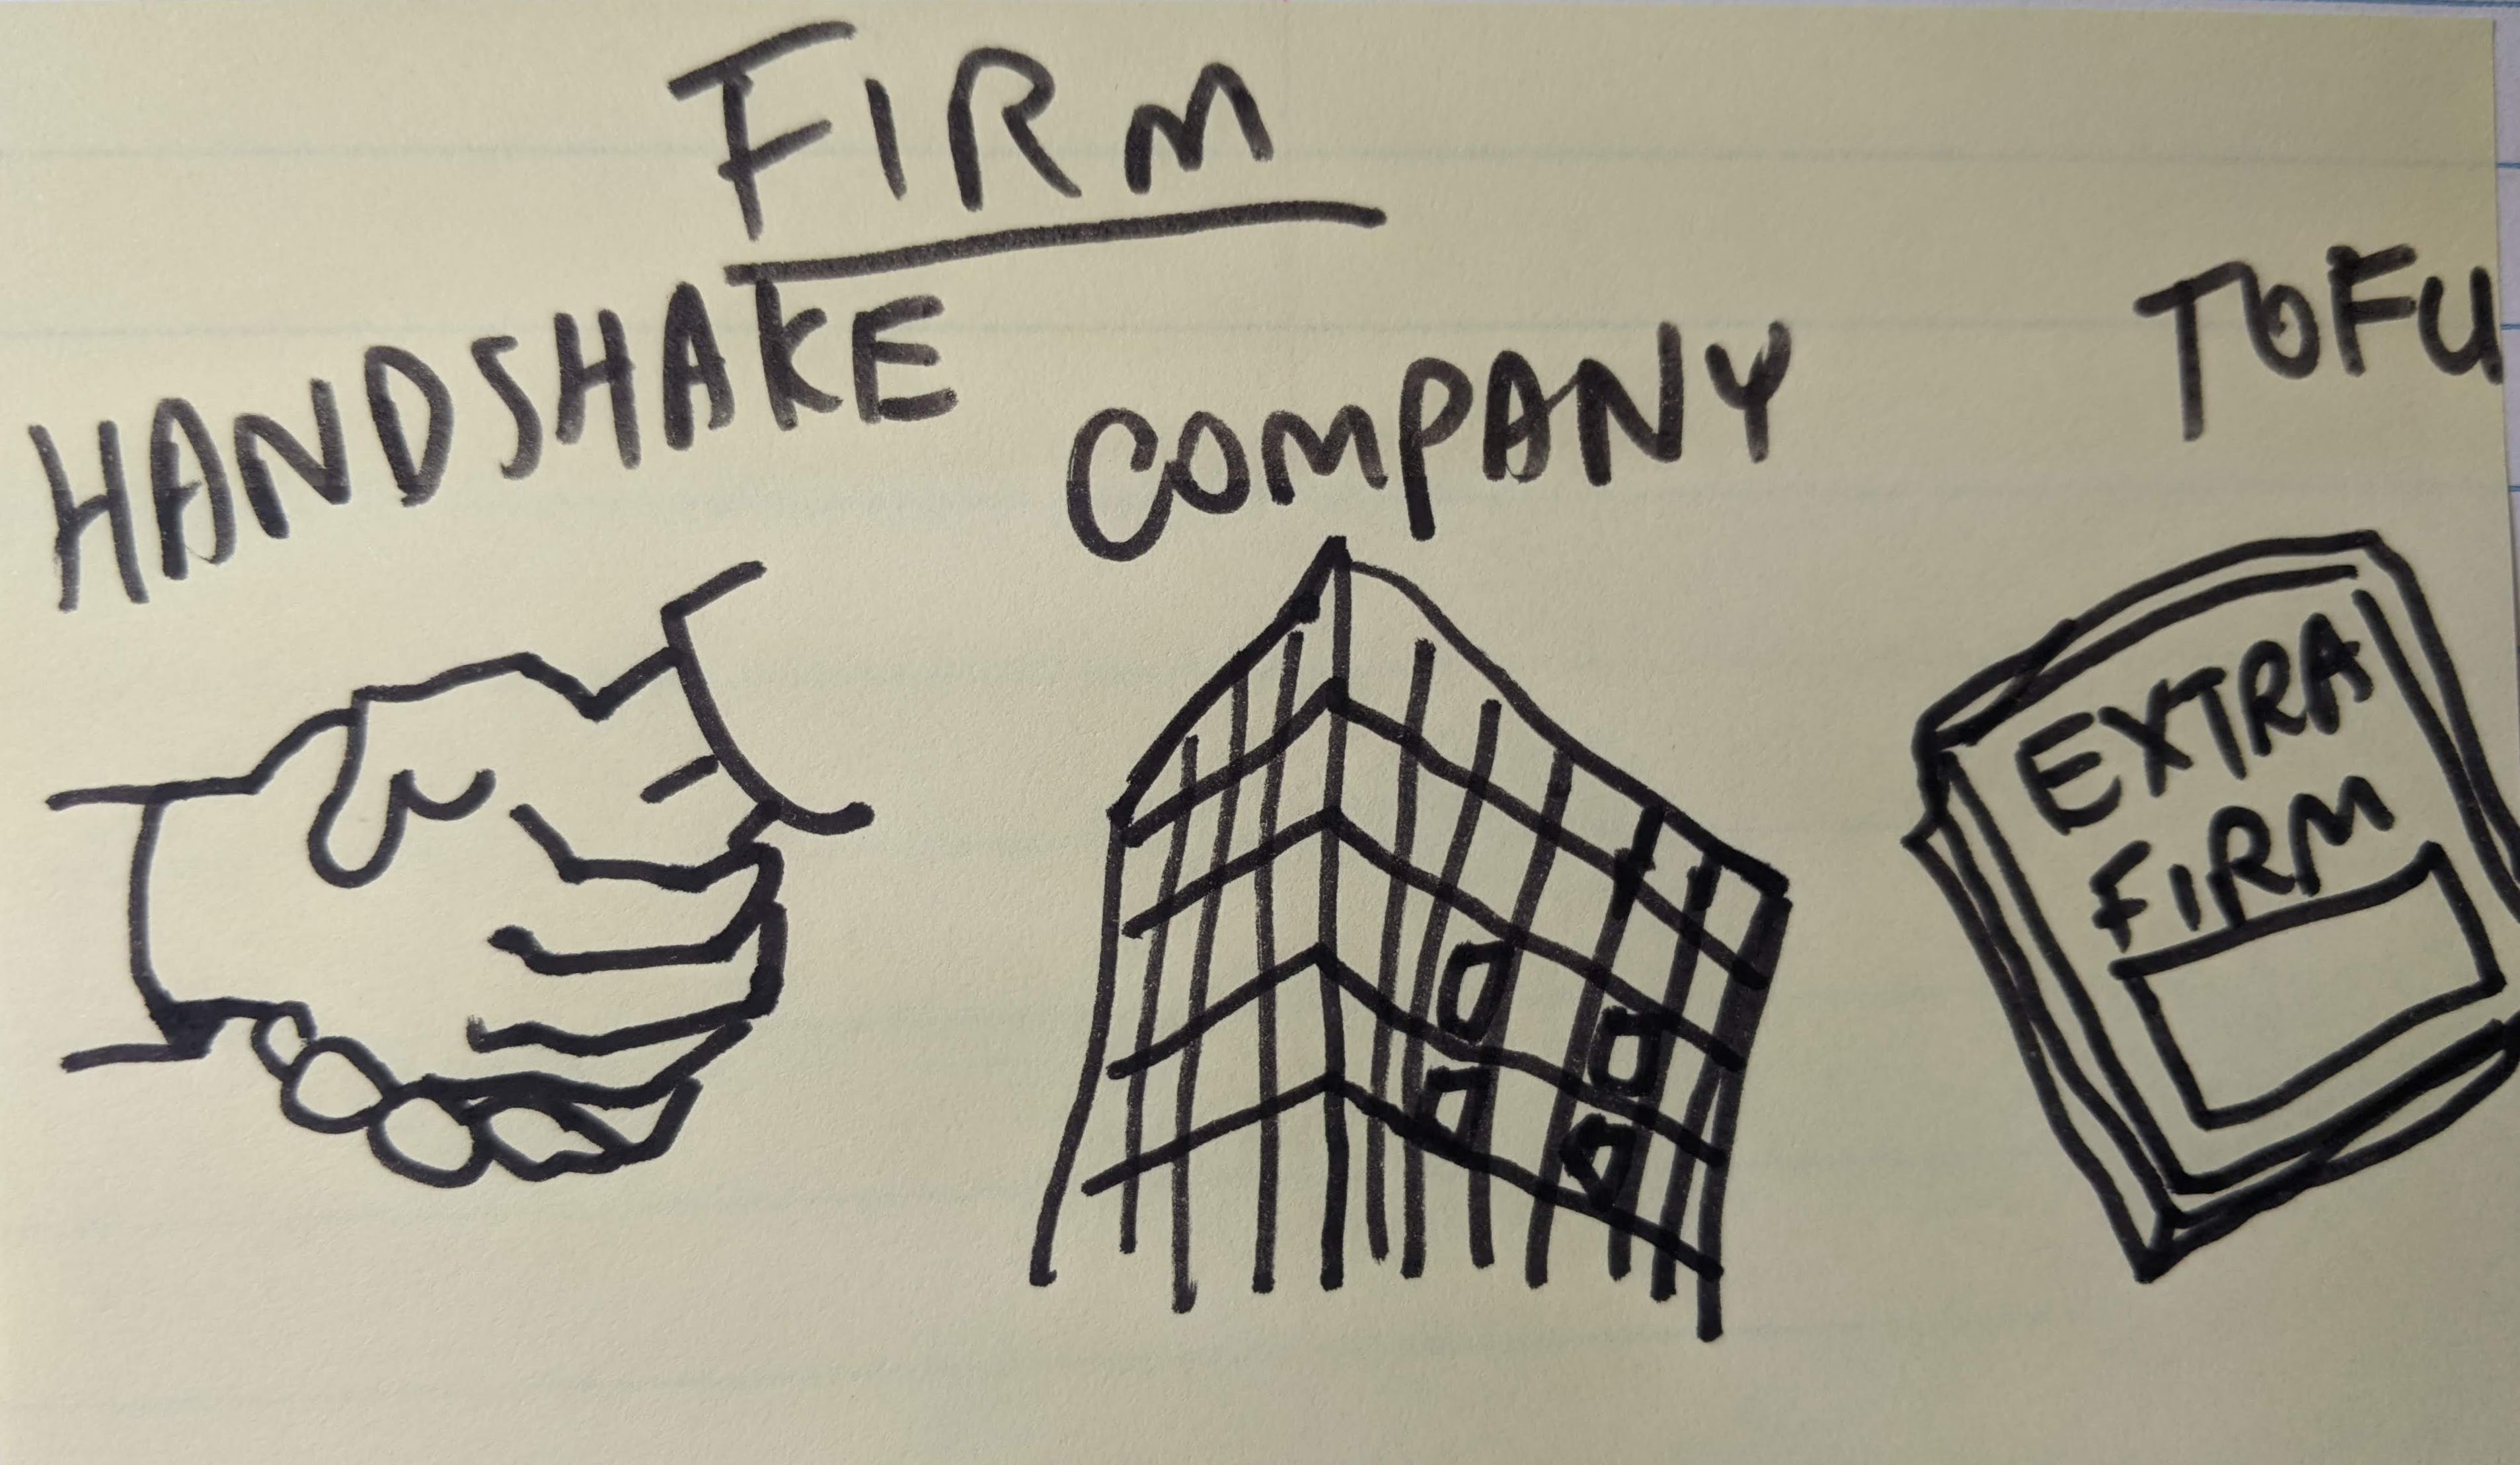 FIRM
HANDSHAKE
COMPANY
TOFU
EXTRA
FIRM